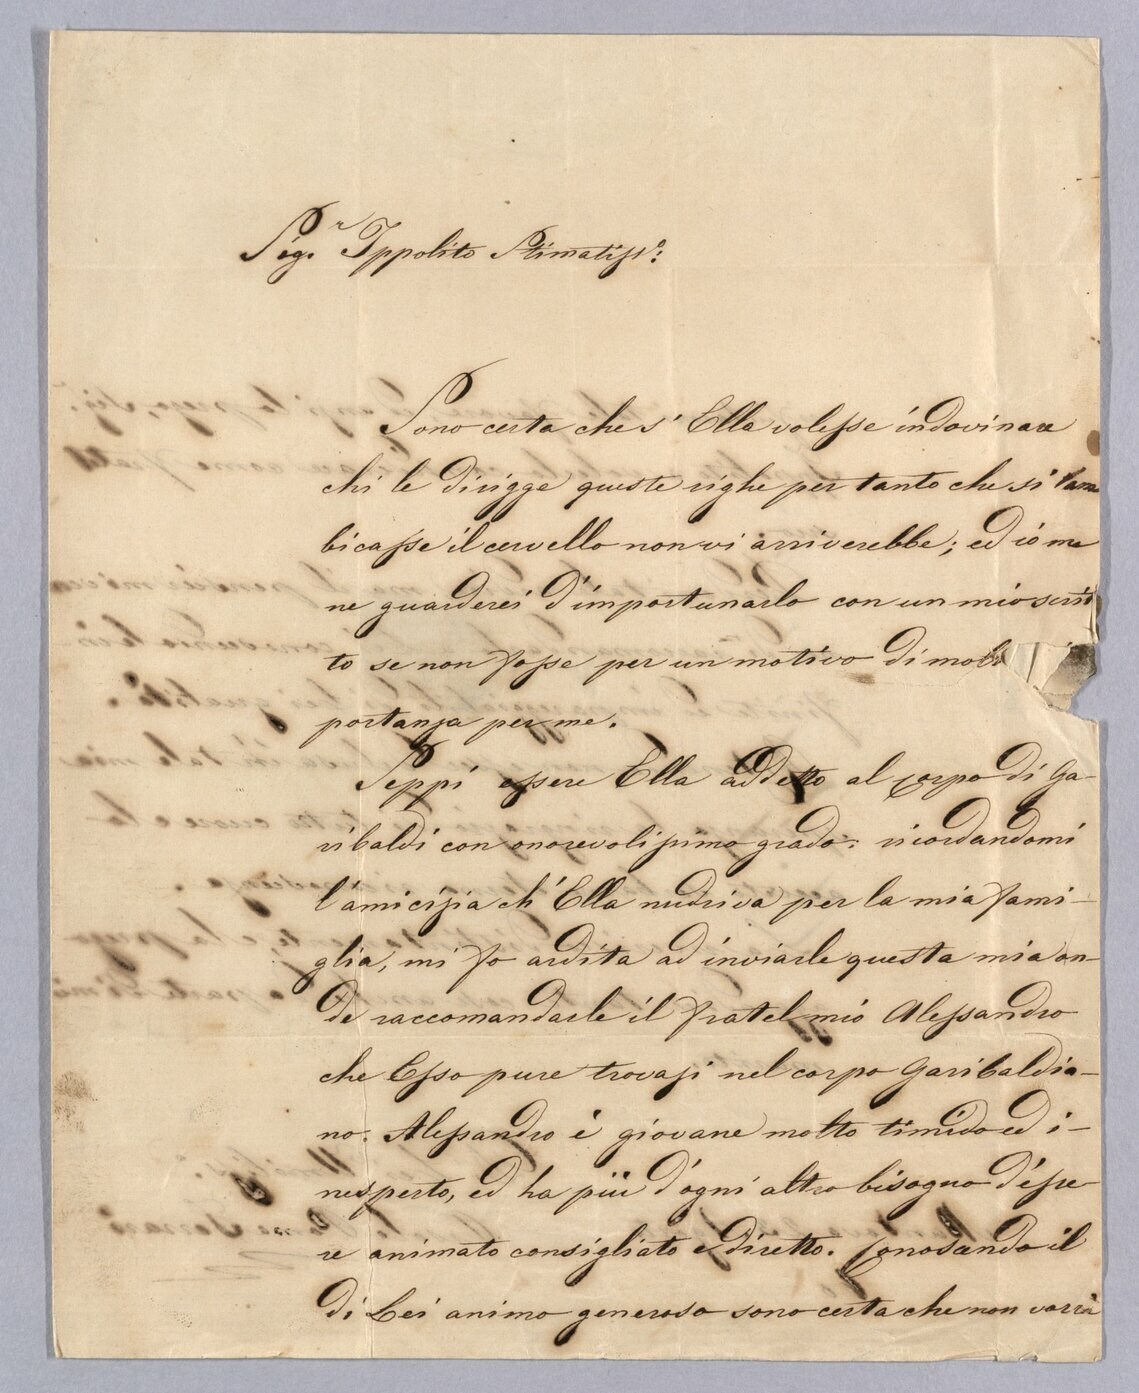 Sig.r Ippolito Stimatiss.o:
Sono certa che s' Ella volesse indovinare
chi le dirigge queste righe per tanto che si lam
bicasse il cervello non vi arriverebbe; ed io me
ne guarderei d'importunarlo con un mio scrit
to se non fosse per un motivo di mol
portanza per me.
Seppi essere Ella addetto al corpo di Ga-
ribaldi con onorevolissimo grado: ricordandomi
l'amicizia ch' Ella nudriva per la mia fami-
glia, mi fo ardita ad inviarle questa mia on-
de raccomandarle il fratel mio Alessandro
che Esso pure trovasi nel corpo Garibaldia-
no. Alessandro è giovane molto timido ed i-
nesperto, ed ha più d'ogni altro bisogno d'esse-
re animato consigliato e diretto. Conosando il
di Lei animo generoso sono certa che non vorrà